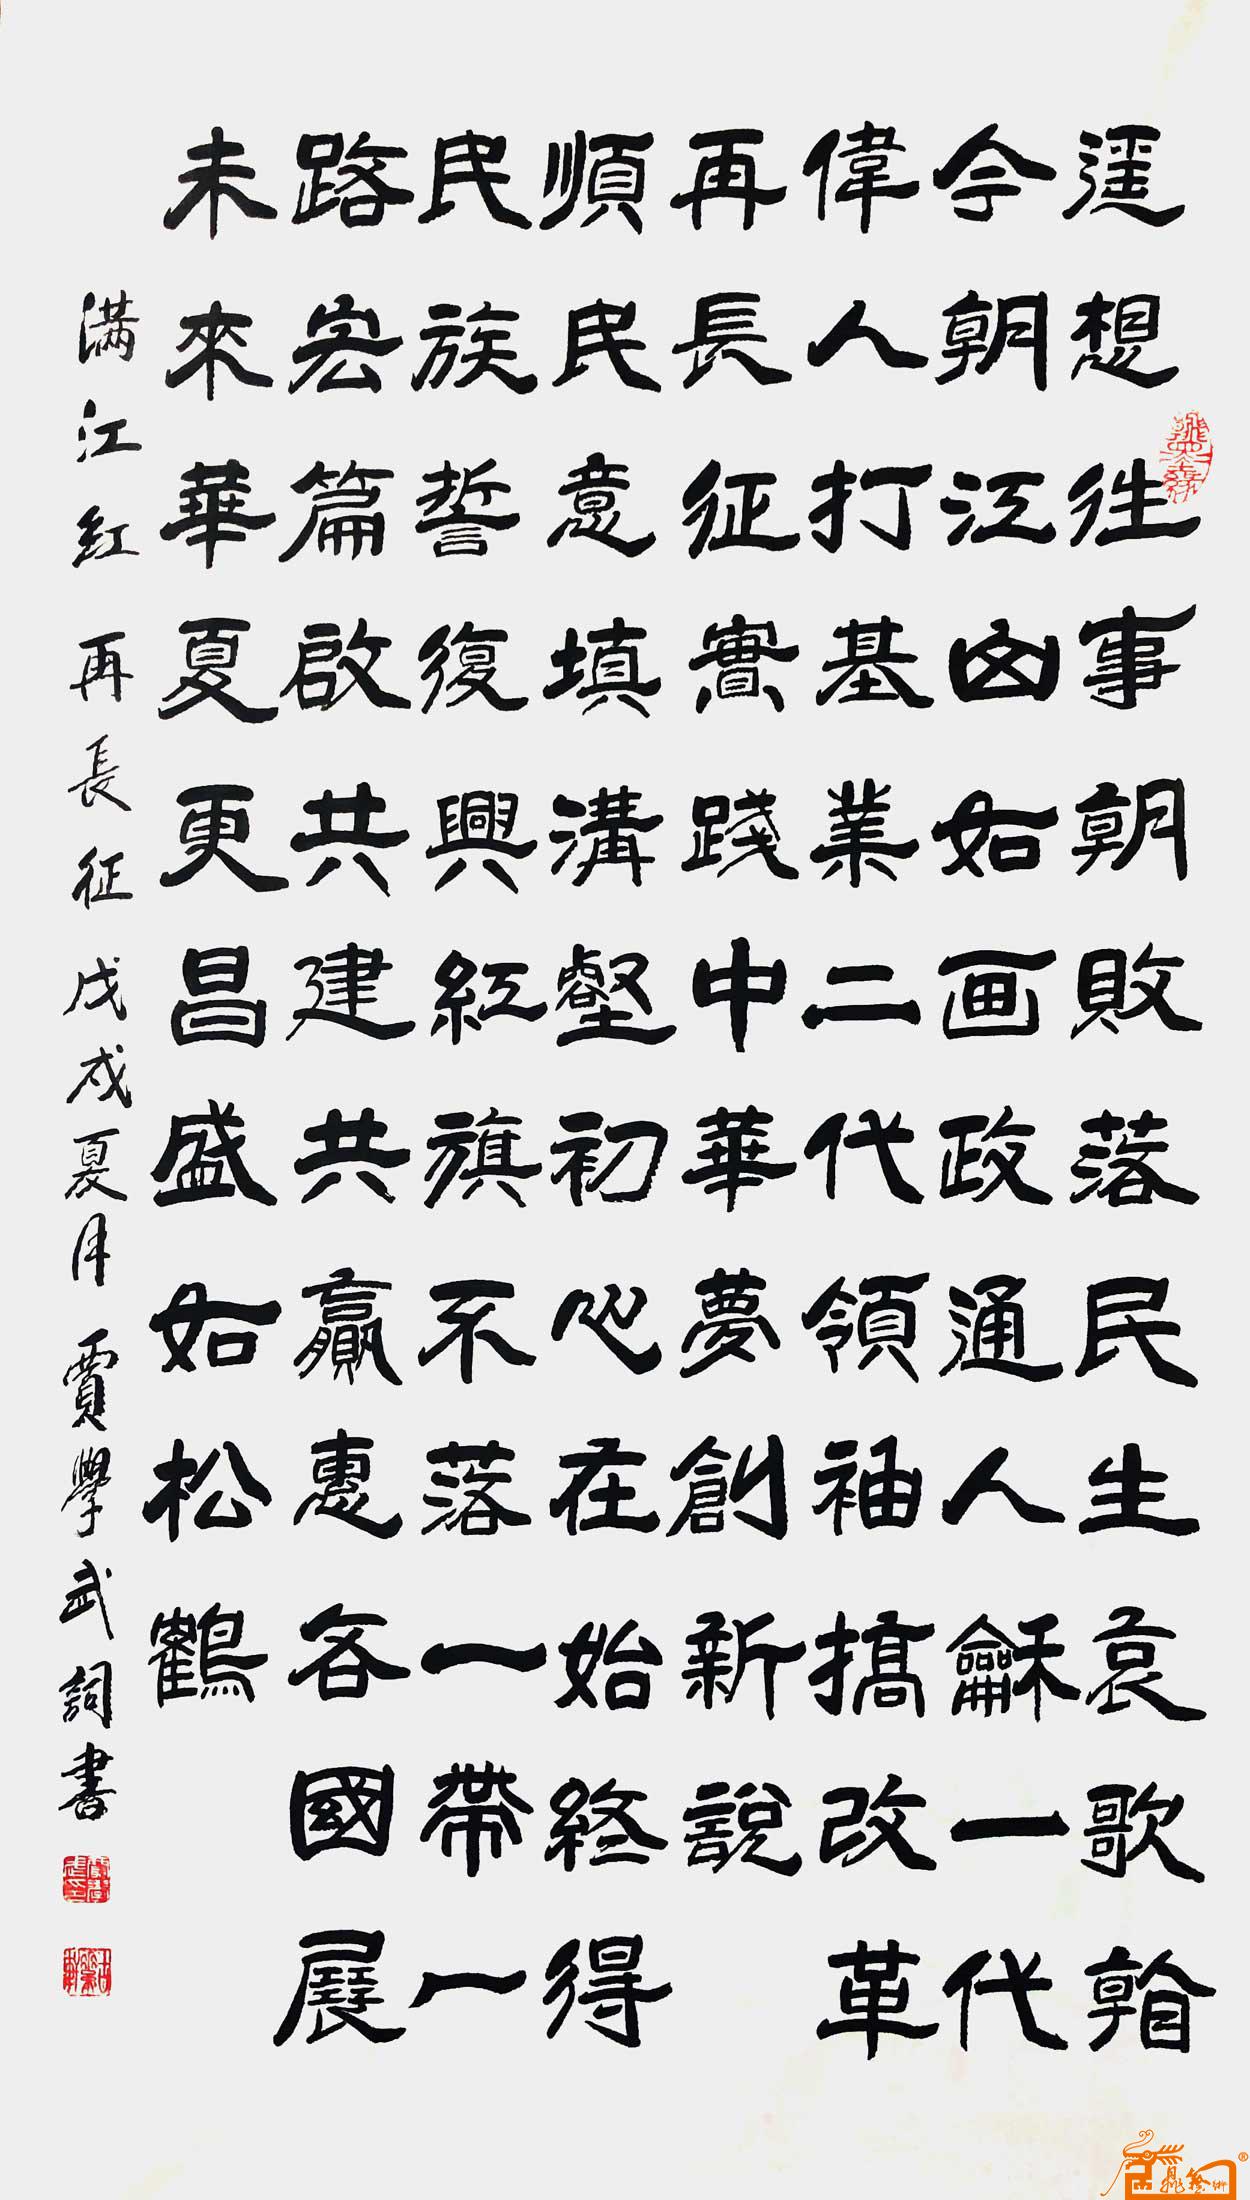 遥想往事朝敗落民生哀歌看
今朝江山如画政通人龢一代
偉人打基業二代領袖搞改革
再長征實踐中華夢創新説
順民意填溝壑初心在始終得
民族誓復興紅旗不落一帶一
路宏篇啟共建共贏惠各國展
未來華夏更昌盛如松鶴
满江紅 再長征 戊戌夏月 賈學武詞書